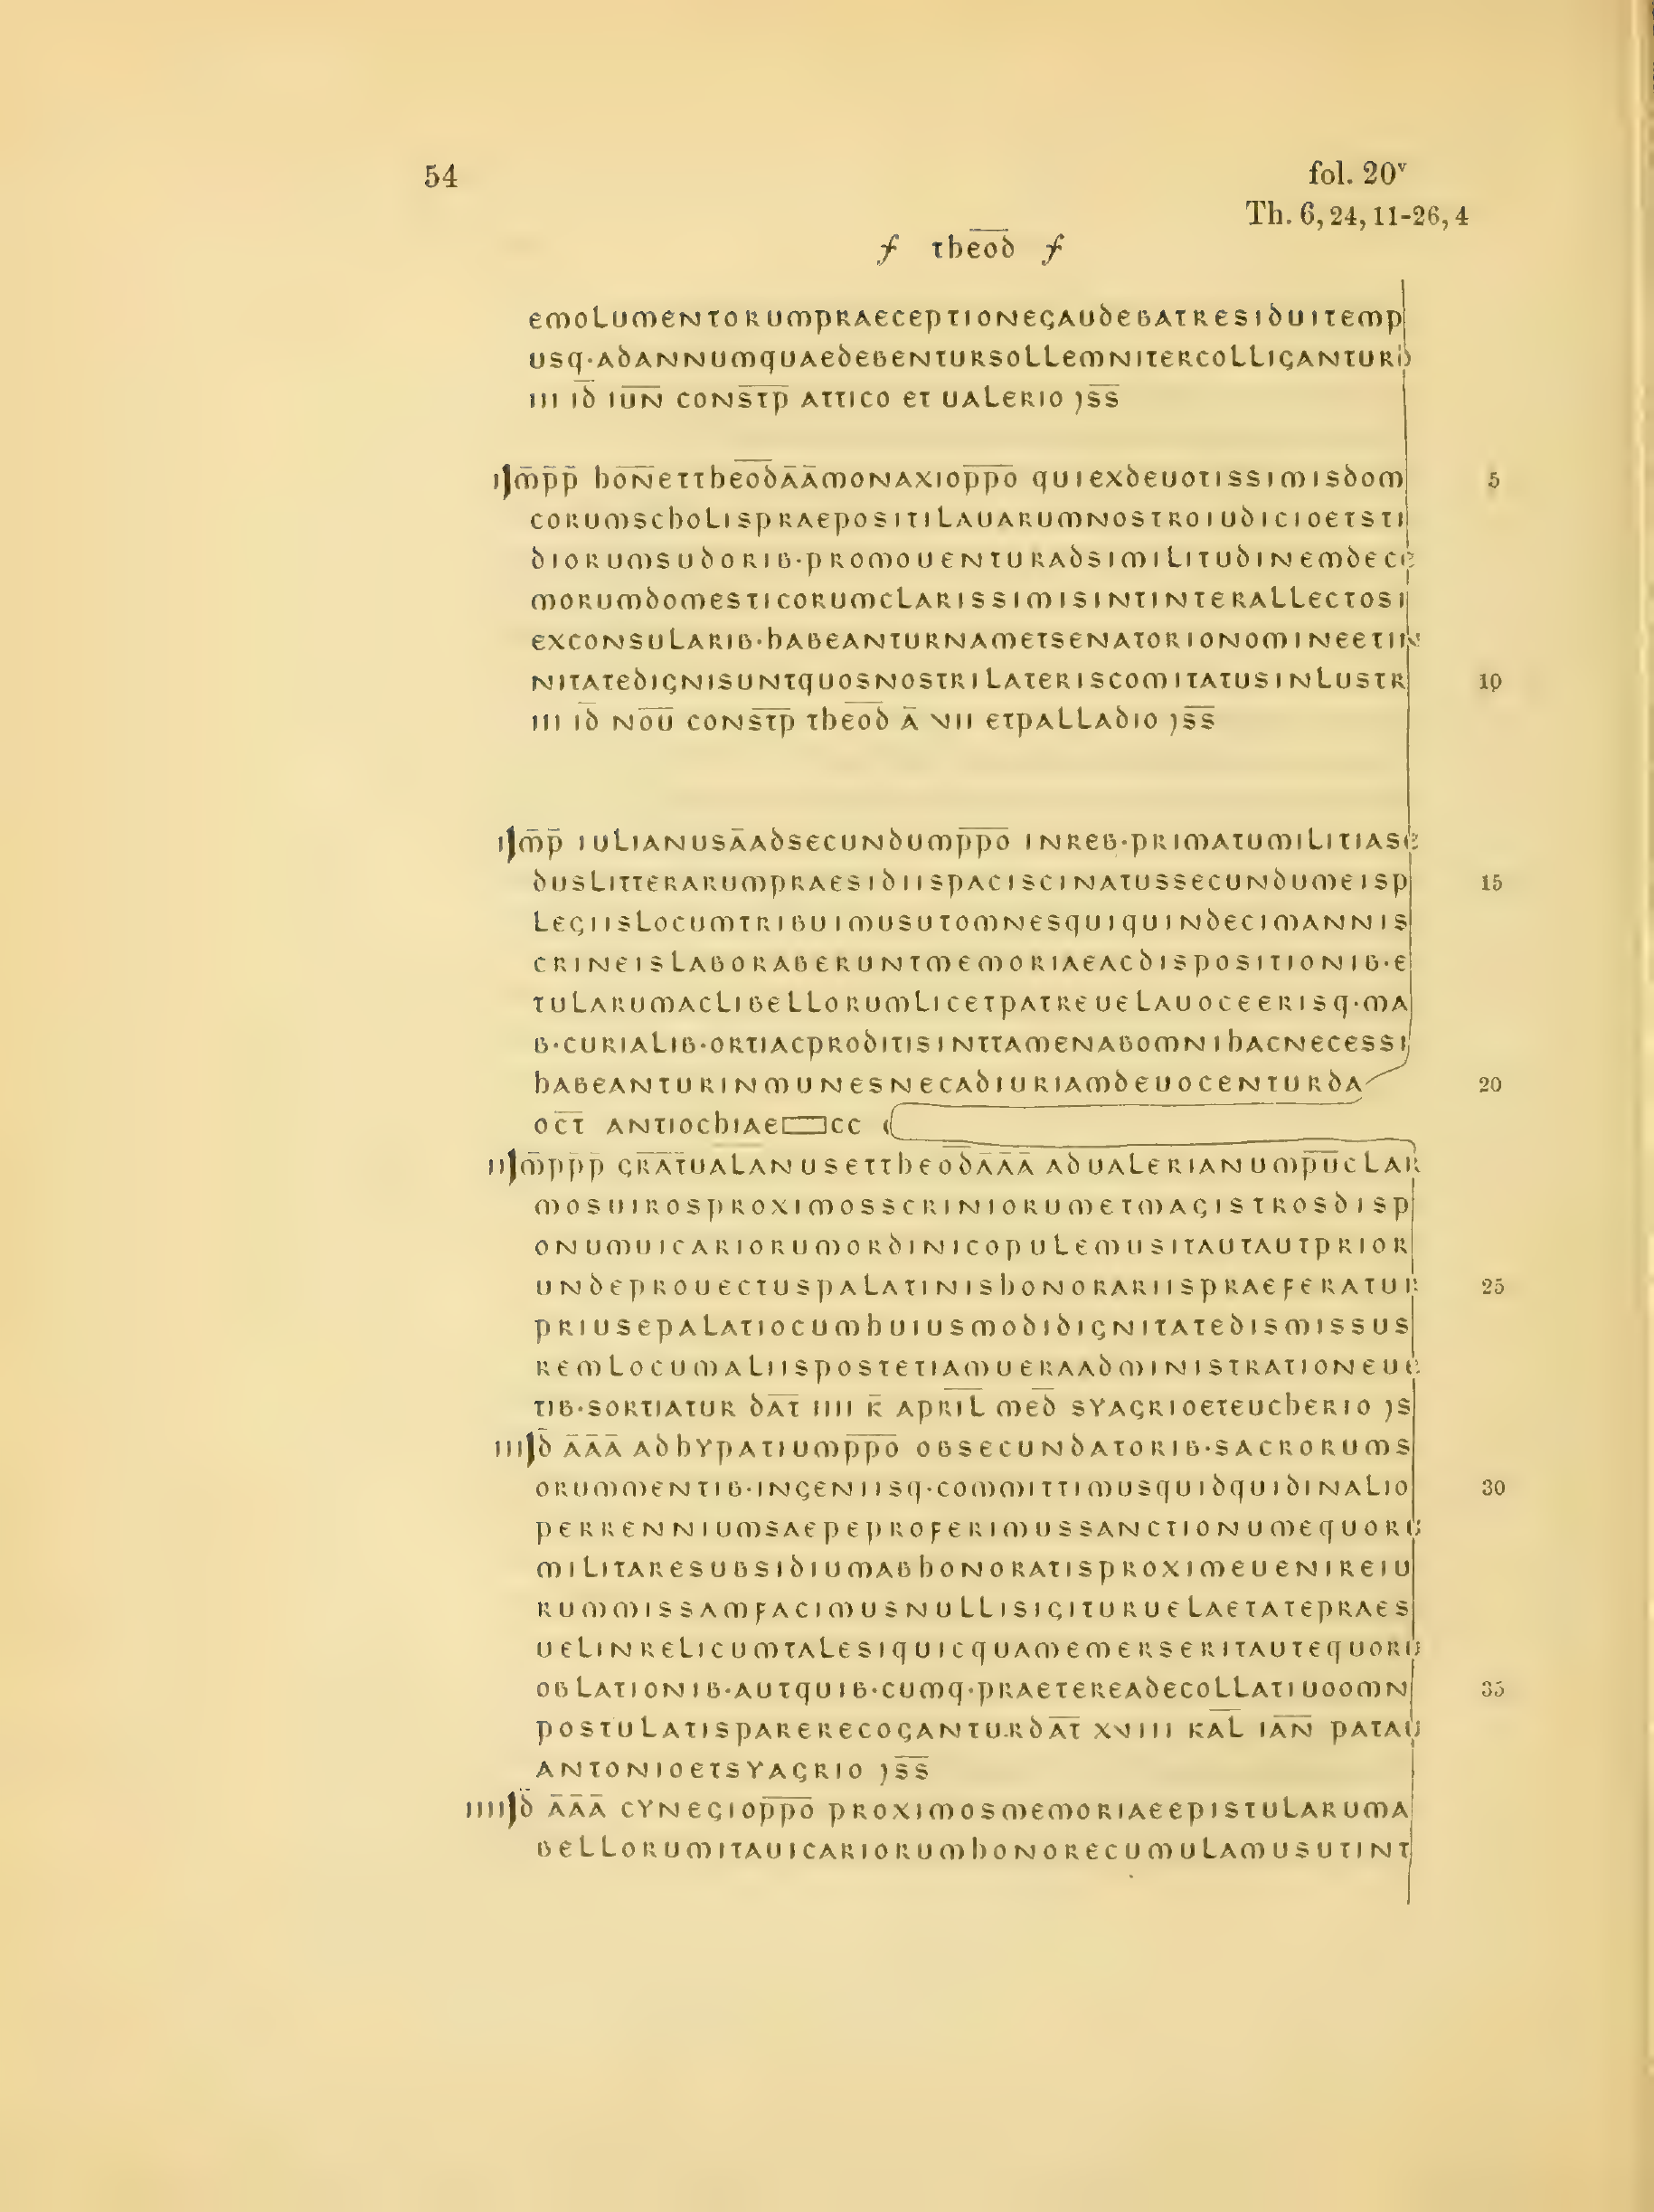 54
fol. 20ᵛ
Th. 6, 24, 11-26, 4
ƒ theo̅d̅ ƒ
emolumentorumpraeceptionegaudebatresiduitemp
usq·adannumquaedebentursollemnitercolliganturd
III i̅d̅ iu̅n̅ cons̅t̅p̅ attico et ualerio )s̅s̅
I]m̅p̅p̅ ho̅n̅ettheo̅d̅a̅a̅monaxiop̅p̅o̅ quiexdeuotissimisdom
corumscholispraepositilauarumnostroiudicioetsti
diorumsudorib·promouenturadsimilitudinemdece
morumdomesticorumclarissimisintinterallectosi
exconsularib·habeanturnametsenatorionomineetin
nitatedignisuntquosnostrilateriscomitatusinlustr
III i̅d̅ no̅u̅ cons̅t̅p̅ theo̅d̅ a̅ VII etpalladio )s̅s̅
I]m̅p̅ iulianusa̅adsecundump̅p̅o̅ inreb·primatumilitiase
duslitterarumpraesidiispaciscinatussecundumeisp
legiislocumtribuimusutomnesquiquindecimannis
crineislaboraberuntmemoriaeacdispositionib·e
tularumaclibellorumlicetpatreuelauoceerisq·ma
b·curialib·ortiacproditisinttamenabomnihacnecessi
habeanturinmunesnecadiuriamdeuocenturda
oc̅t̅ antiochiae▭cc
II]m̅p̅p̅p̅ gra̅t̅ualanusettheo̅d̅a̅a̅a̅ adualerianump̅u̅clar
mosuirosproximosscriniorumetmagistrosdisp
onumuicariorumordinicopulemusitautautprior
undeprouectuspalatinishonorariispraeferatur
priusepalatiocumhuiusmodidignitatedismissus
remlocumaliispostetiamueraadministrationeue
tib·sortiatur da̅t̅ IIII k̅ apri̅l̅ me̅d̅ syagrioeteucherio )s
III]d̅ a̅a̅a̅ adhypatiump̅p̅o̅ obsecundatorib·sacrorums
orummentib·ingeniisq·committimusquidquidinalio
perrenniumsaepeproferimussanctionumequoru
militaresubsidiumabhonoratisproximeuenireiu
rummissamfacimusnullisigituruelaetatepraes
uelinrelicumtalesiquicquamemerseritautequoru
oblationib·autquib·cumq·praetereadecollatiuoomn
postulatisparerecogantu.rda̅t̅ XVIII ka̅l̅ ia̅n̅ patau
antonioetsyagrio )s̅s̅
IIII]d̅ a̅a̅a̅ cynegiop̅p̅o̅ proximosmemoriaeepistularuma
bellorumitauicariorumhonorecumulamusutint
5
10
15
20
25
30
35